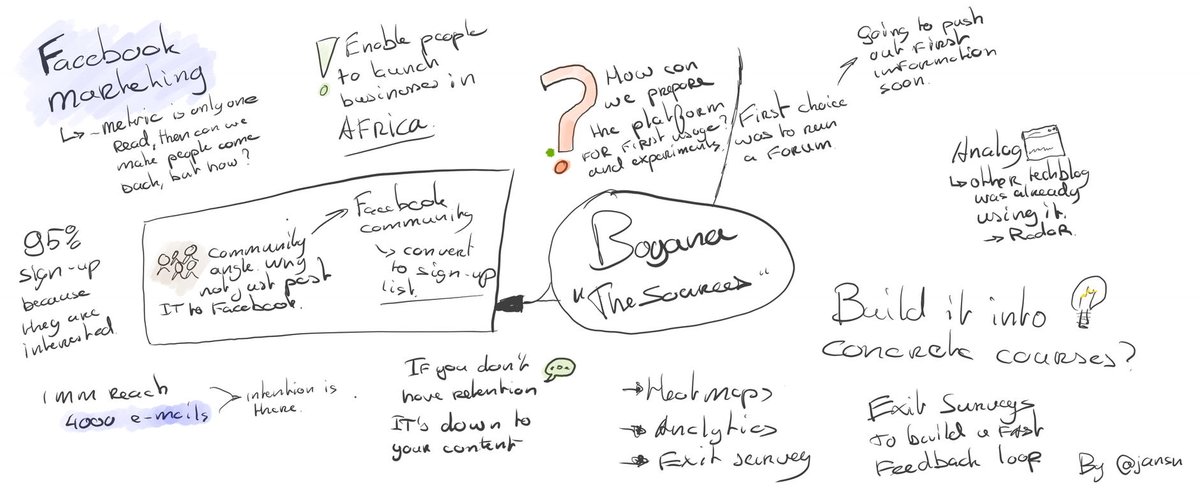 Facebook
marketing
↳ - metric is only one
Read, then can we
make people come
back, but how?
Enable people
to launch
businesses in
AFRICA.
How can
we prepare
the platform
FOR FIRST usage?
and experiments.
First choice
was to run
a forum
going to push
out First
information
soon.
Analog
↳ other techblog
was already
using it.
→ RadaR.
95%
sign-up
because
they are
interested.
community
angle. Why
not just post
IT to Facebook.
Facebook
community
↳ convert
to sign-up
list.
Bogana
"The Sources"
Build it into
concrete courses?
1 MM Reach
4000 e-mails
intention is
there.
If you don't
have retention
IT's down to
your content
→ Heatmaps
→ Analytics
→ Exit survey
Exit Surveys
to build a Fast
Feedback loop
By @jansn